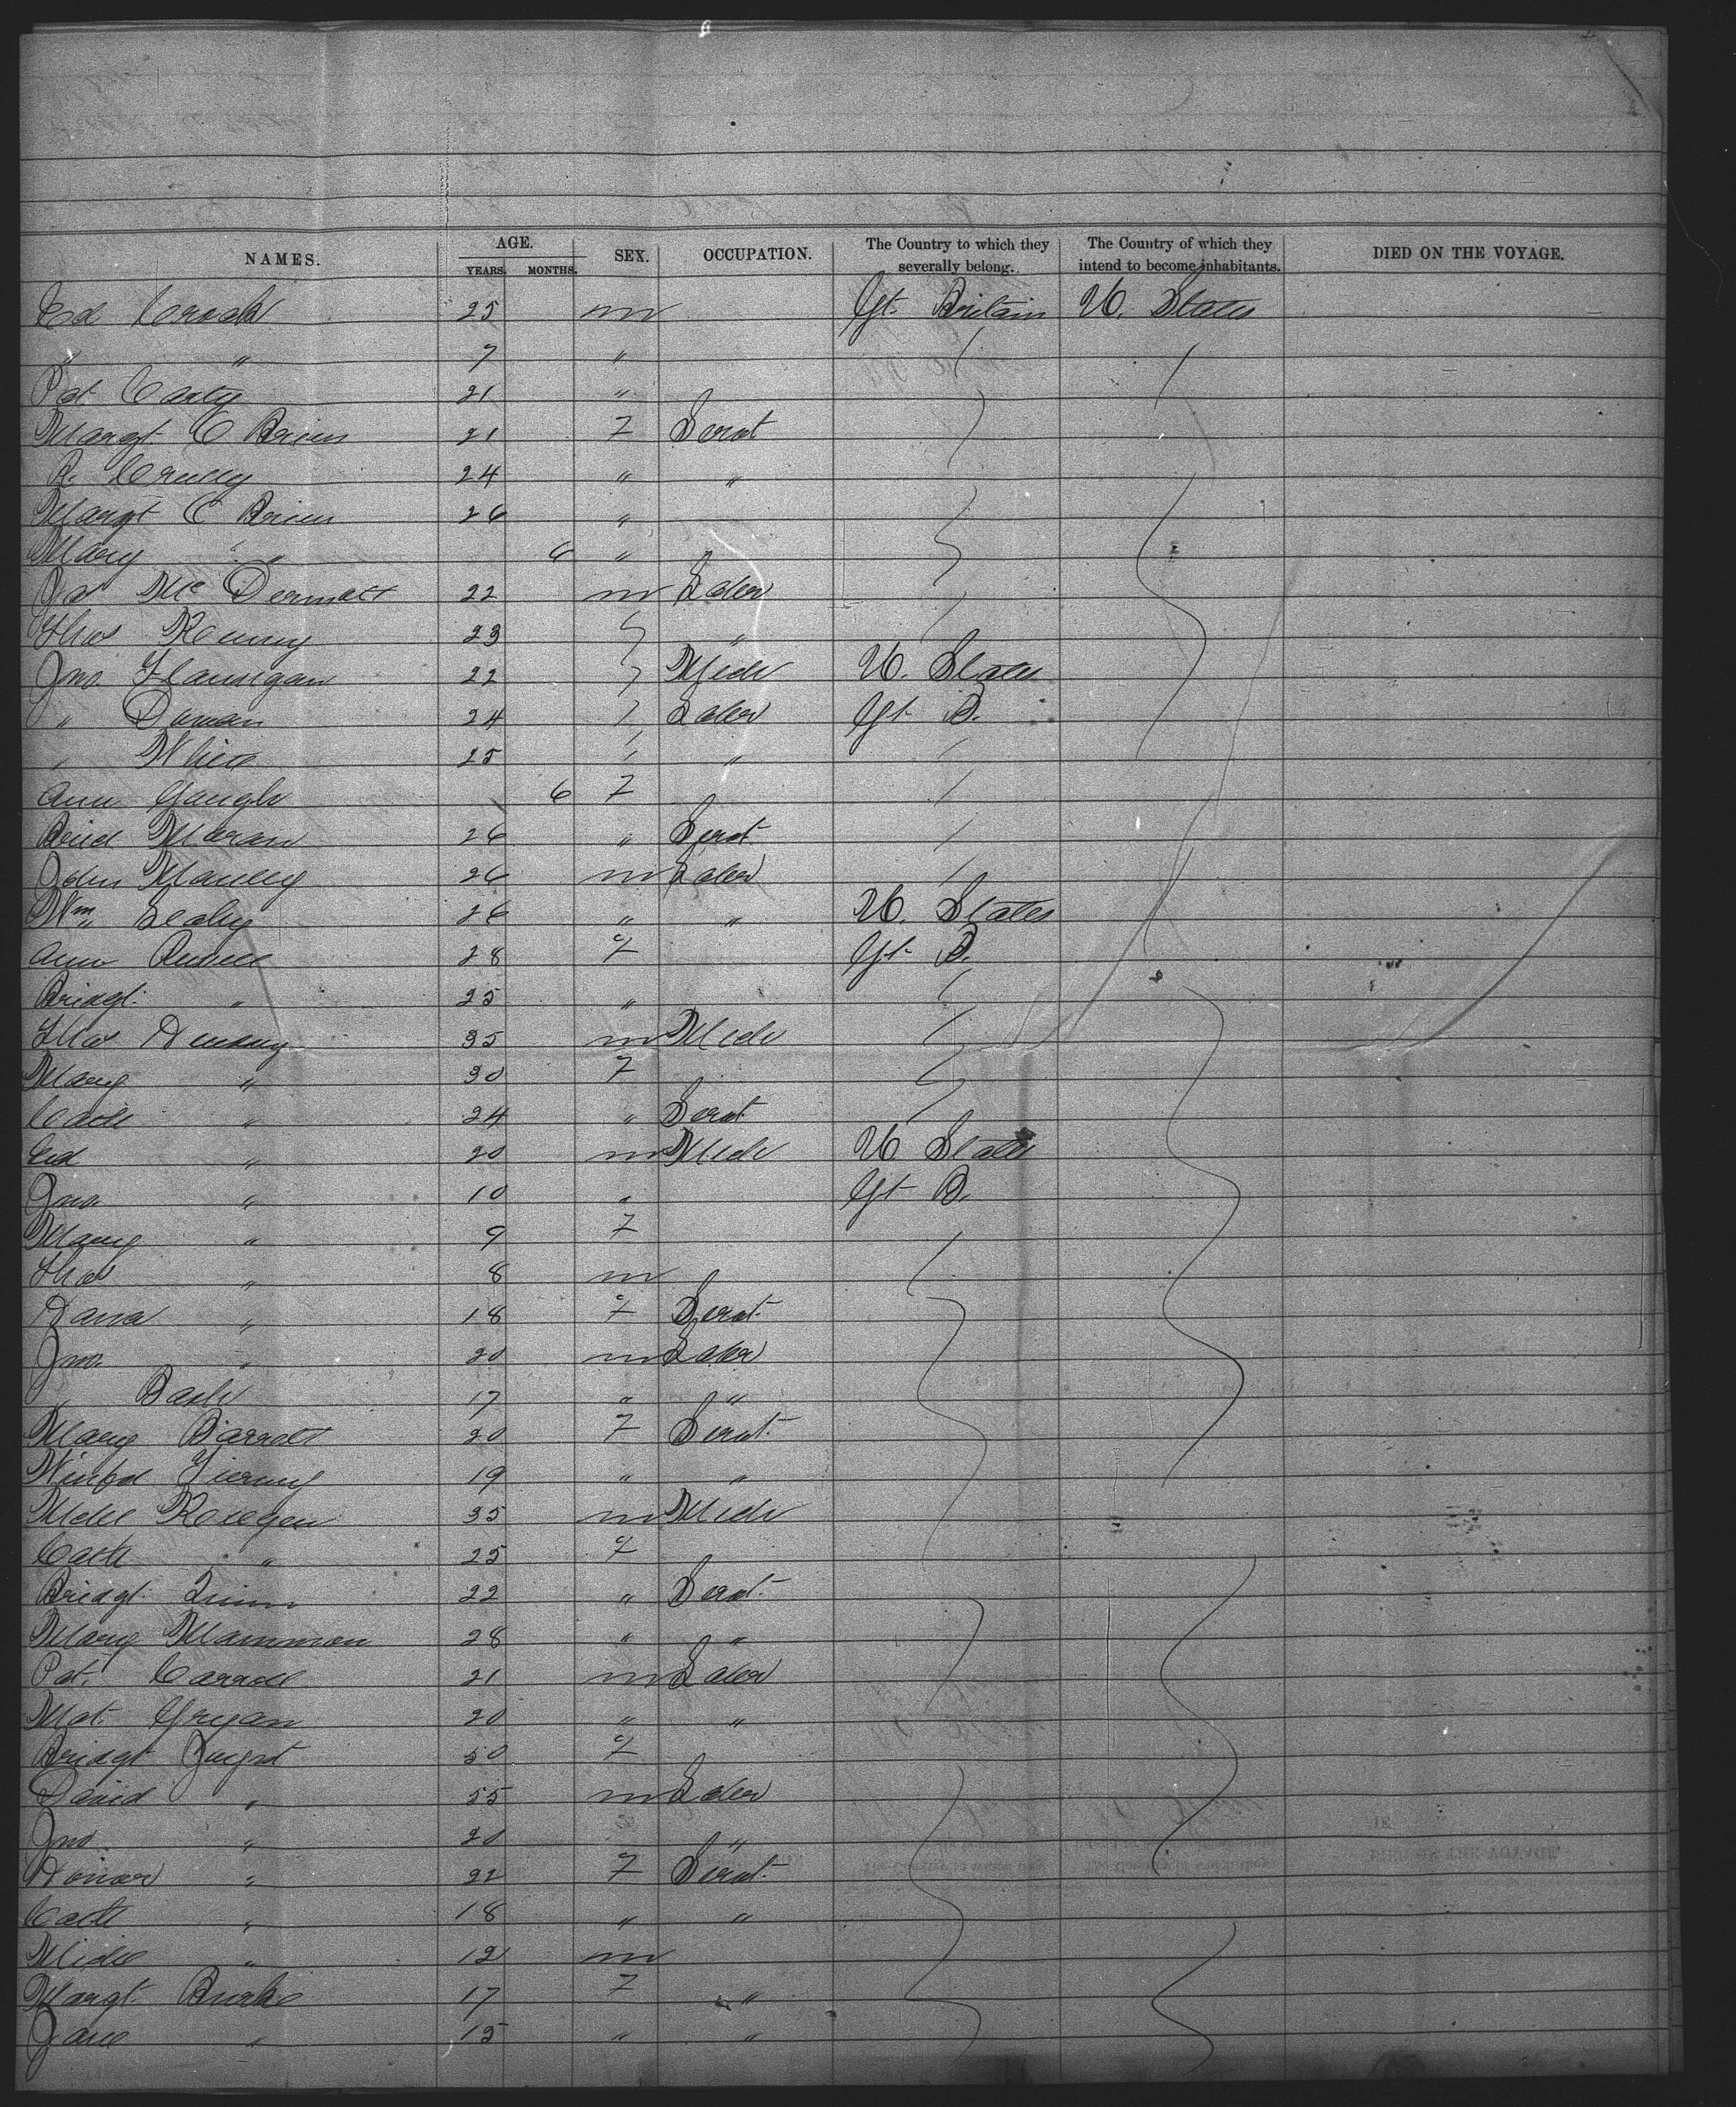 NAMES. AGE. YEARS. MONTHS. SEX. OCCUPATION. The Country to which they severally belong. The Country of which they intend to become inhabitants. DIED ON THE VOYAGE.
Ed 25 m Gt. Britain U. States
" " 7 "
Pat Carty 21 "
Margt O Brien 21 F Servt
R. Crully 24 " "
Margt O Brien 26 "
Mary " 6 "
Jas McDermott 22 m Labr
Thos Kenny 23 "
Jno. Flannigan 22 Mech U. States
" Duncan 24 Labr Gt. B.
" White 25 "
Ann Gaugh 6 F
Brid Moran 26 " Servt
John Manley 26 m Labr
Wm Leahy 26 " " U. States
Ann Russell 28 F Gt. B.
Bridgt. " 25 "
Thos 35 m Mech
Mary " 30 F
Cath " 24 " Servt
Ed " 20 m Mech U States
Jno. " 10 " Gt B.
Mary " 9 F
Thos " 8 m
" 18 F Servt.
Jno. " 20 m Labr
" 17 " "
Mary Barrett 20 F Servt.
Winfd Tierney 19 " "
Mchl 35 m Mech
Cath " 25 F
Bridgt. Quinn 22 " Servt.
Mary Mammon 28 " "
Pat. Carroll 21 m Labr
Mat. 20 " "
Bridgt 50 F
David " 55 m Labr
Jno " 20 "
Honor " 22 F Servt.
Cath " 18 " "
" 12 m
Margt. Burke 17 F "
Jane " 15 " "